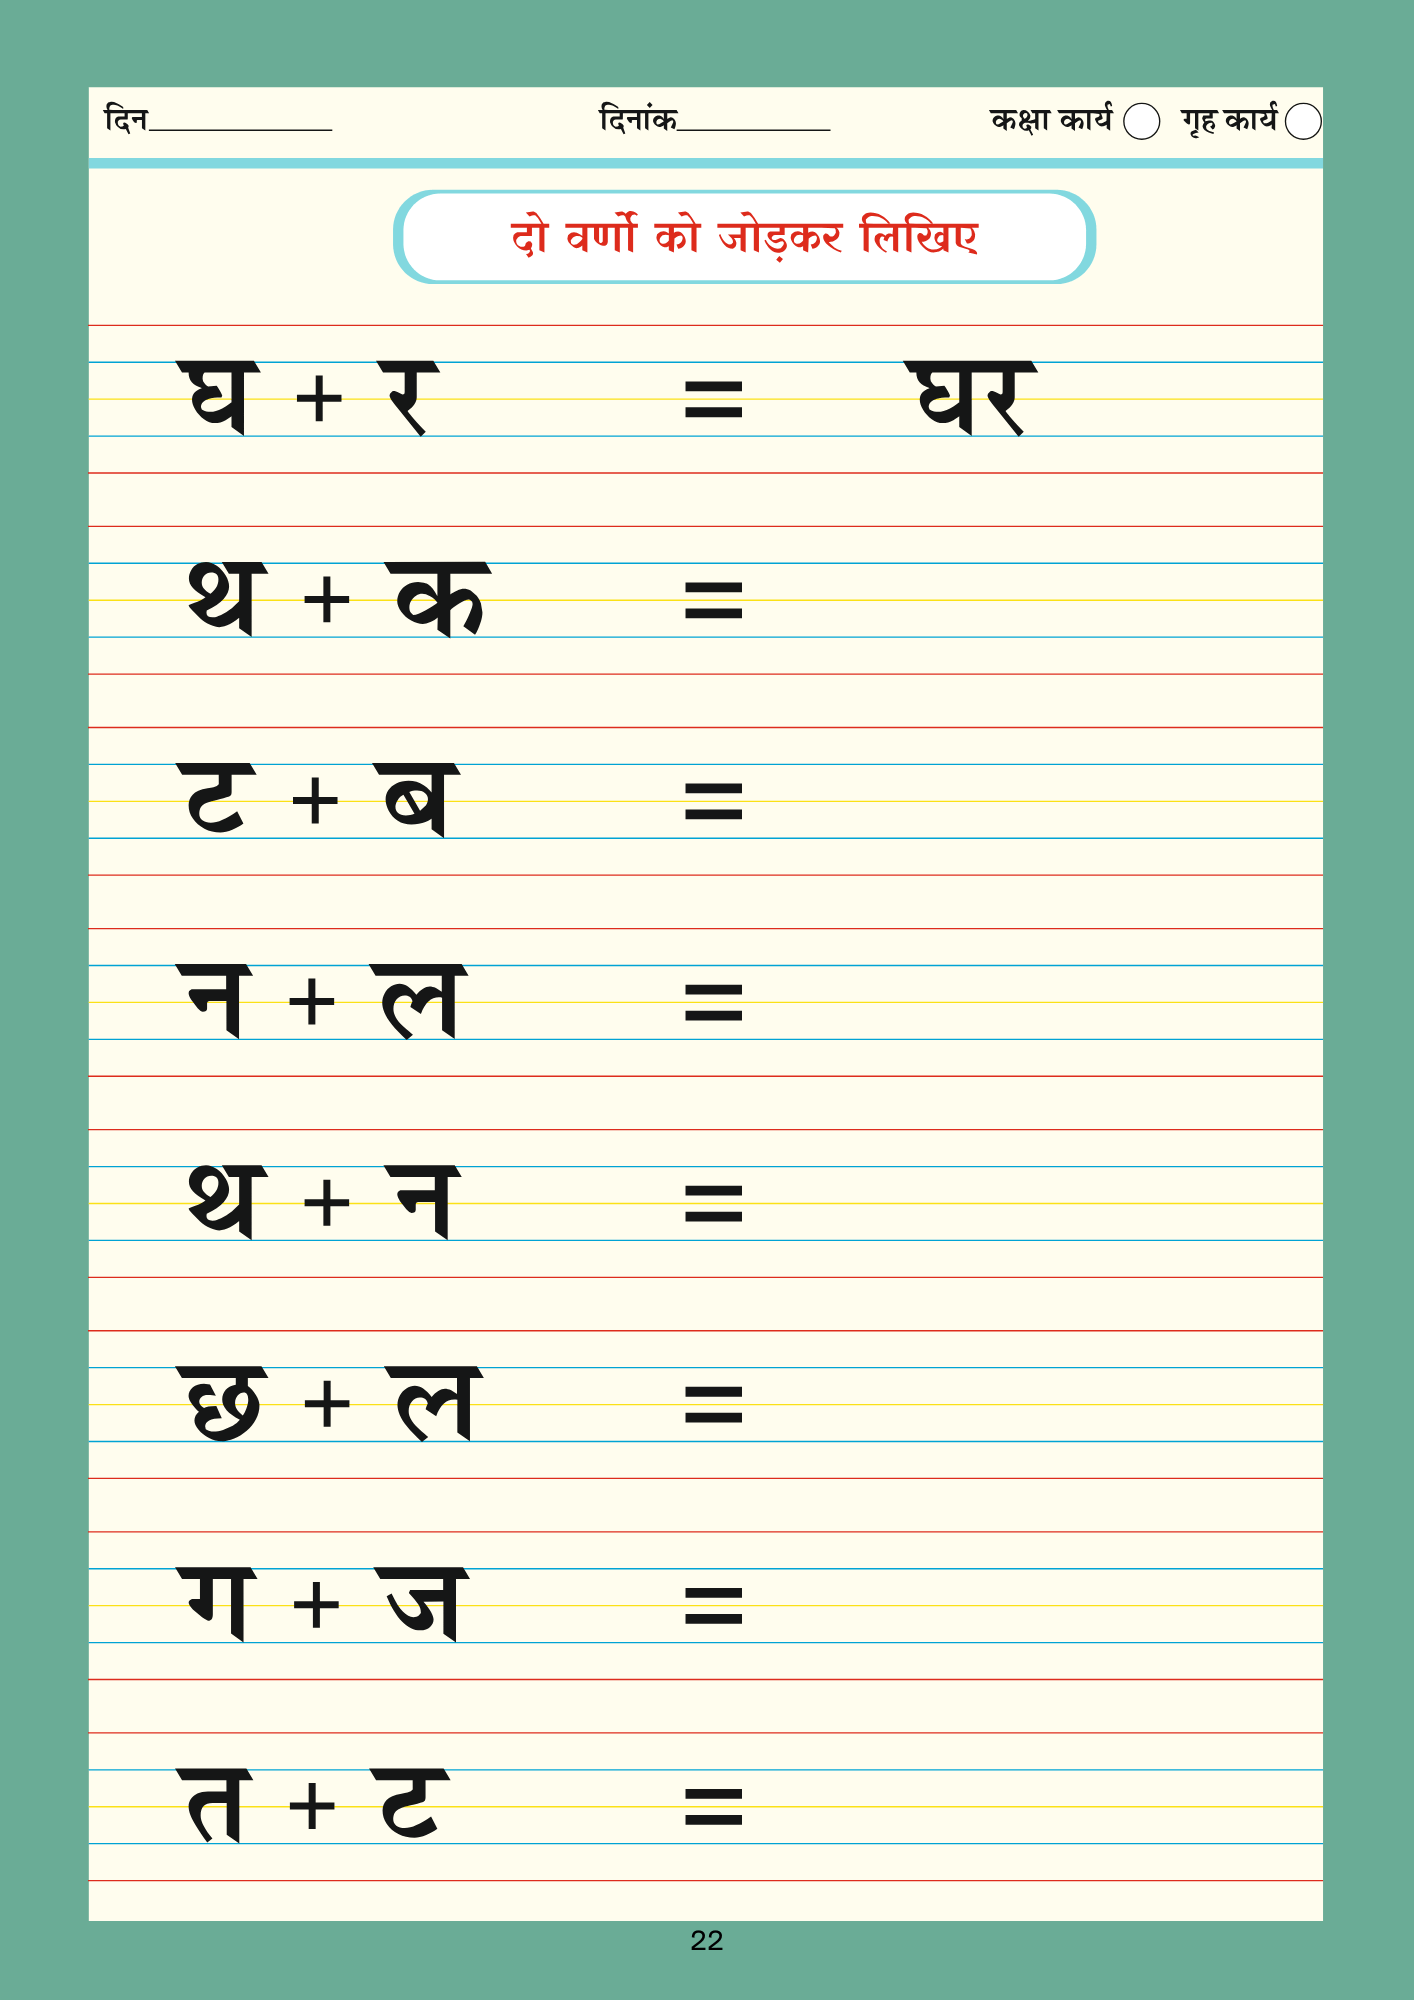 दिन____________ दिनांक__________ कक्षा कार्य गृह कार्य
दो वर्णो को जोड़कर लिखिए
घ + र = घर
थ + क =
ट + ब =
न + ल =
थ + न =
छ + ल =
ग + ज =
त + ट =
22